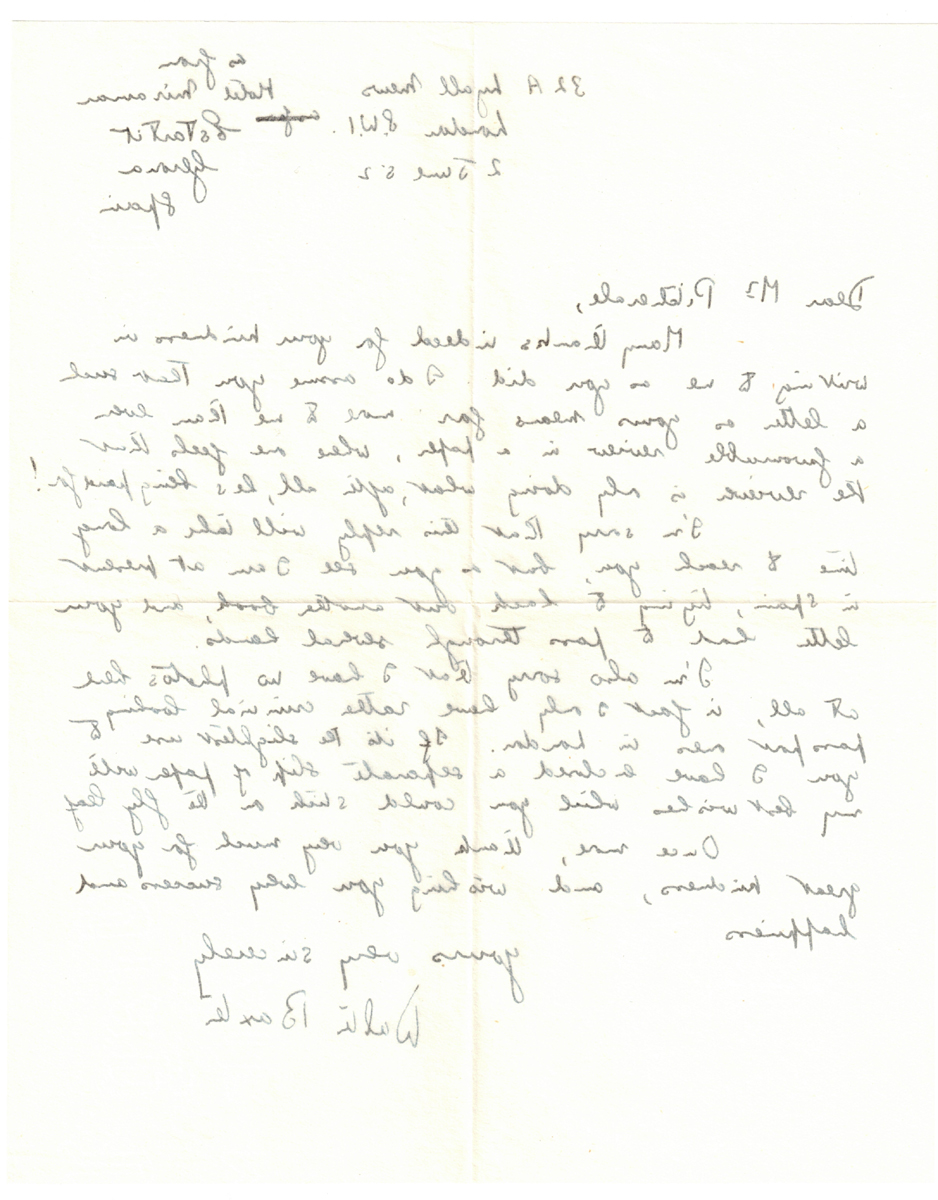 32 A Lyall Mews
London S.W.1.
2 June 52
as from
Hotel Miramar
Estartit
Gerona
Spain
Dear Mr
Many thanks indeed for your kindness in
writing to me as you did. I do assure you that such
a letter as yours means far more to me than even
a favourable review in a paper, when one feels that
the reviewer is only doing what, after all, he's being paid for!
I'm sorry that this reply will take a long
time to reach you, but as you see I am at present
in Spain, trying to hack out another book, and your
letter had to pass through several hands.
I'm also sorry that I have no photos here
at all, in fact I only have rather criminal looking
passport ones in London. If it's the slightest use to
you I have enclosed a separate slip of paper with
my best wishes which you could stick on the fly leaf
Once more, thank you very much for your
great kindness, and wishing you every success and
happiness
yours very sincerely
Walter Baxter